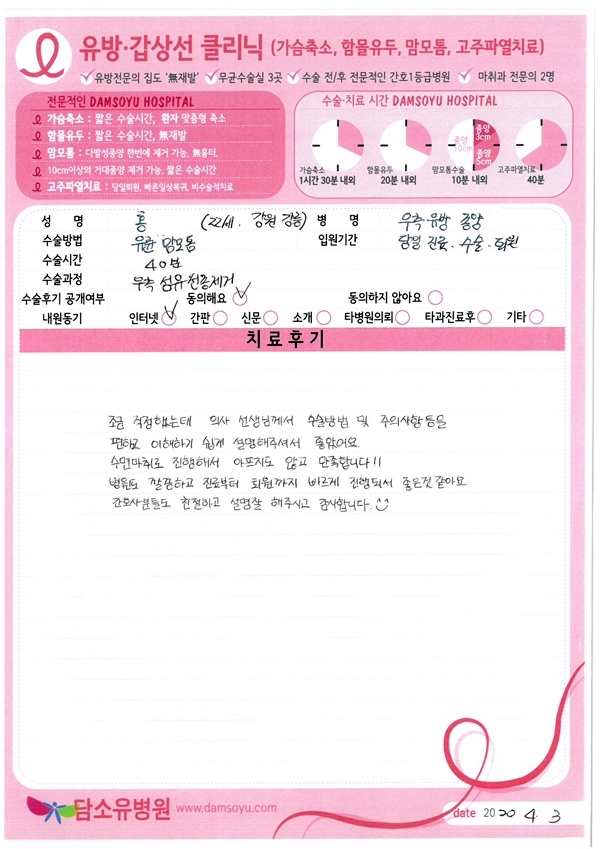 유방·갑상선 클리닉 (가슴축소, 함몰유두, 맘모톰, 고주파열치료)
유방전문의 집도 '無재발' 무균수술실 3곳 수술 전/후 전문적인 간호1등급병원 마취과 전문의 2명
전문적인 DAMSOYU HOSPITAL
가슴축소 : 짧은 수술시간, 환자 맞춤형 축소
함몰유두 : 짧은 수술시간, 無재발
맘모톰 : 다발성종양 한번에 제거 가능, 無흉터,
10cm이상의 거대종양 제거 가능, 짧은 수술시간
고주파열치료 : 당일퇴원, 빠른일상복귀, 비수술적치료
수술·치료 시간 DAMSOYU HOSPITAL
종양 3cm
종양 10cm
종양 5cm
가슴축소 함몰유두 맘모톰수술 고주파열치료
1시간 30분 내외 20분 내외 10분 내외 40분
성 명 홍 (22세. 강원 강릉) 병 명 우측 유방 종양
수술방법 유륜 맘모톰 입원기간 당일 진료. 수술. 퇴원
수술시간 40분
수술과정 우측 섬유선종제거
수술후기 공개여부 동의해요 동의하지 않아요
내원동기 인터넷 간판 신문 소개 타병원의뢰 타과진료후 기타
치료후기
조금 걱정했는데 의사 선생님께서 수술방법 및 주의사항등을
편하고 이해하기 쉽게 설명해주셔서 좋았어요
수면마취로 진행해서 아프지도 않고 만족합니다!!
병원도 깔끔하고 진료부터 퇴원까지 빠르게 진행되서 좋은것 같아요
간호사분들도 친절하고 설명잘 해주시고 감사합니다.
담소유병원 www.damsoyu.com
date 2020 4 3